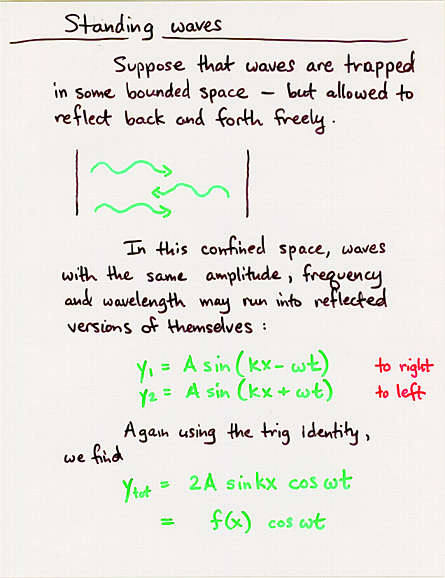 Standing waves
Suppose that waves are trapped
in some bounded space – but allowed to
reflect back and forth freely.
In this confined space, waves
with the same amplitude, frequency
and wavelength may run into reflected
versions of themselves :
y₁ = A sin (kx - ωt) to right
y₂ = A sin (kx + ωt) to left
Again using the trig identity,
we find
y_tot = 2A sin kx cos ωt
= f(x) cos ωt